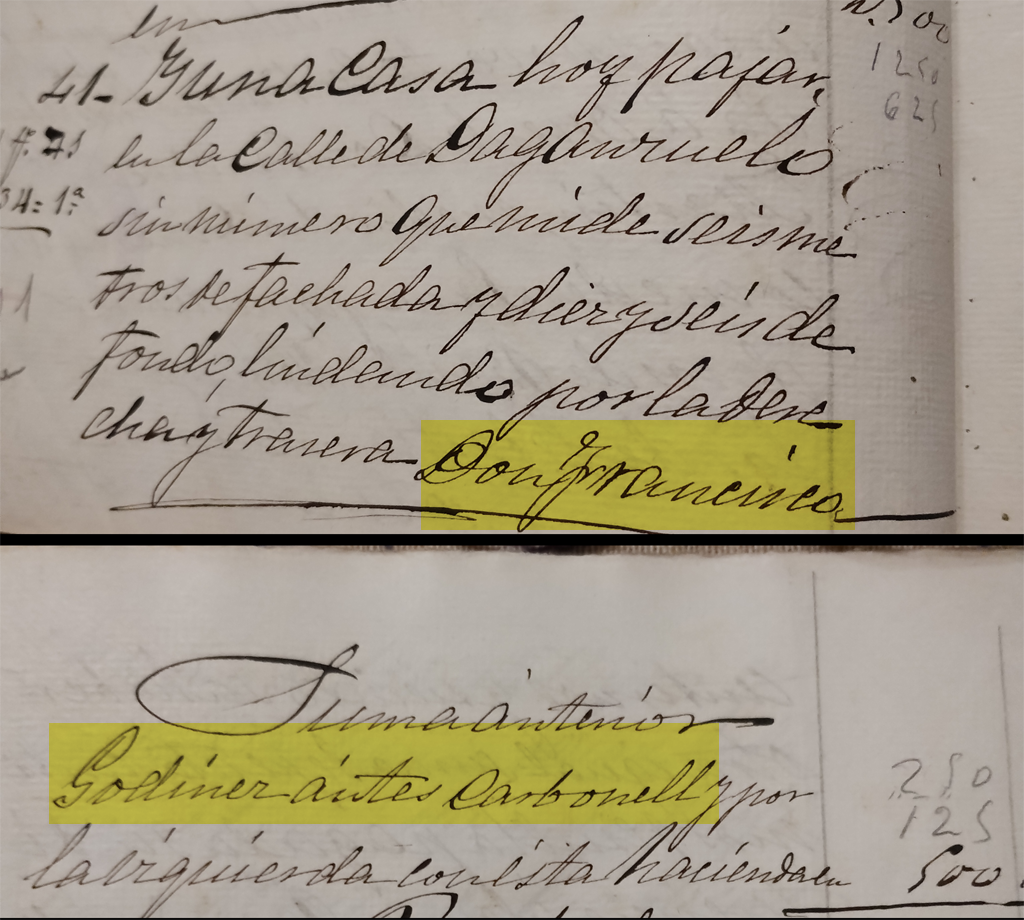 en
2.500
41- Y una Casa hoy pajar,
1250
625
fº 71
en la Calle de Daganzuelo,
34= 1ª
sin número que mide seis me
tros de fachada y diez y seis de
fondo, lindando por la dere
cha y trasera Don Francisco
Suma anterior
Godinez ántes Carbonell y por
250
125
la izquierda con ésta hacienda en
500